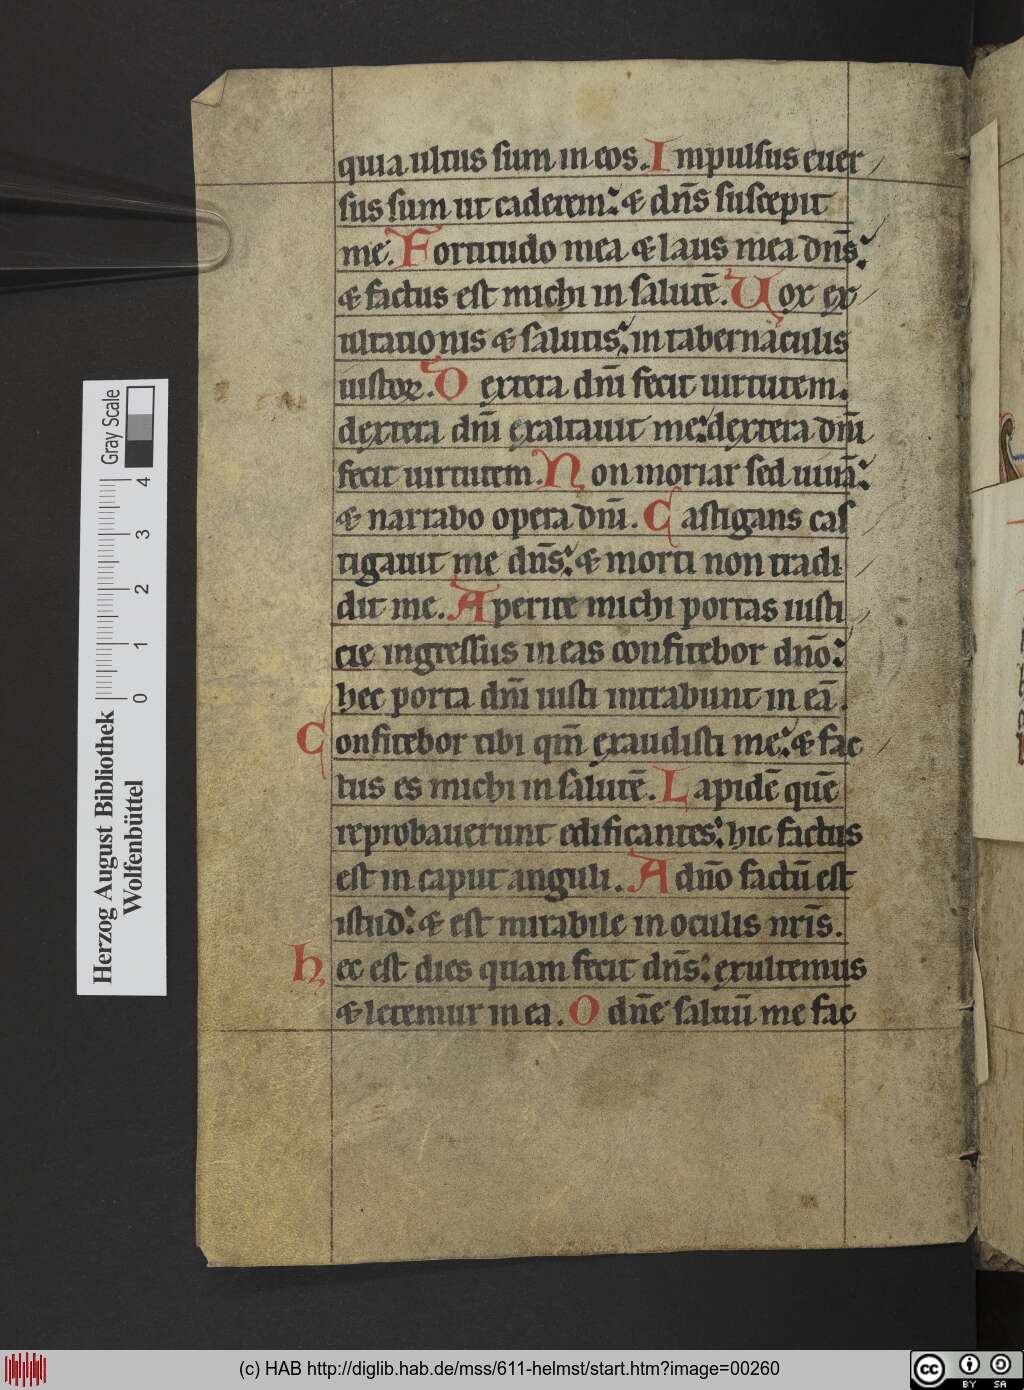 quia ultus sum in eos. Impulsus euer
sus sum ut caderem: & dn̄s suscepit
me: Fortitudo mea & laus mea dn̄s:
& factus est michi in salutē. Uox ex
ultationis & salutis: in tabernaculis
iustoꝝ. Dextera dn̄i fecit uirtutem.
dextera dn̄i exaltauit me: dextera dn̄i
fecit uirtutem. Non moriar sed uiuā:
& narrabo opera dn̄i. Castigans cas
tigauit me dn̄s: & morti non tradi
dit me. Aperite michi portas iusti
cie ingressus in eas confitebor dn̄o:
hec porta dn̄i iusti intrabunt in eā.
Confitebor tibi qm̄ exaudisti me: & fac
tus es michi in salutē. Lapidē quē
reprobauerunt edificantes: hic factus
est in caput anguli. A dn̄o factū est
istud: & est mirabile in oculis nr̄is.
Hec est dies quam fecit dn̄s: exultemus
& letemur in ea. O dn̄e saluū me fac
Herzog August Bibliothek
Wolfenbüttel
Gray Scale
0 1 2 3 4
(c) HAB http://diglib.hab.de/mss/611-helmst/start.htm?image=00260
cc BY SA